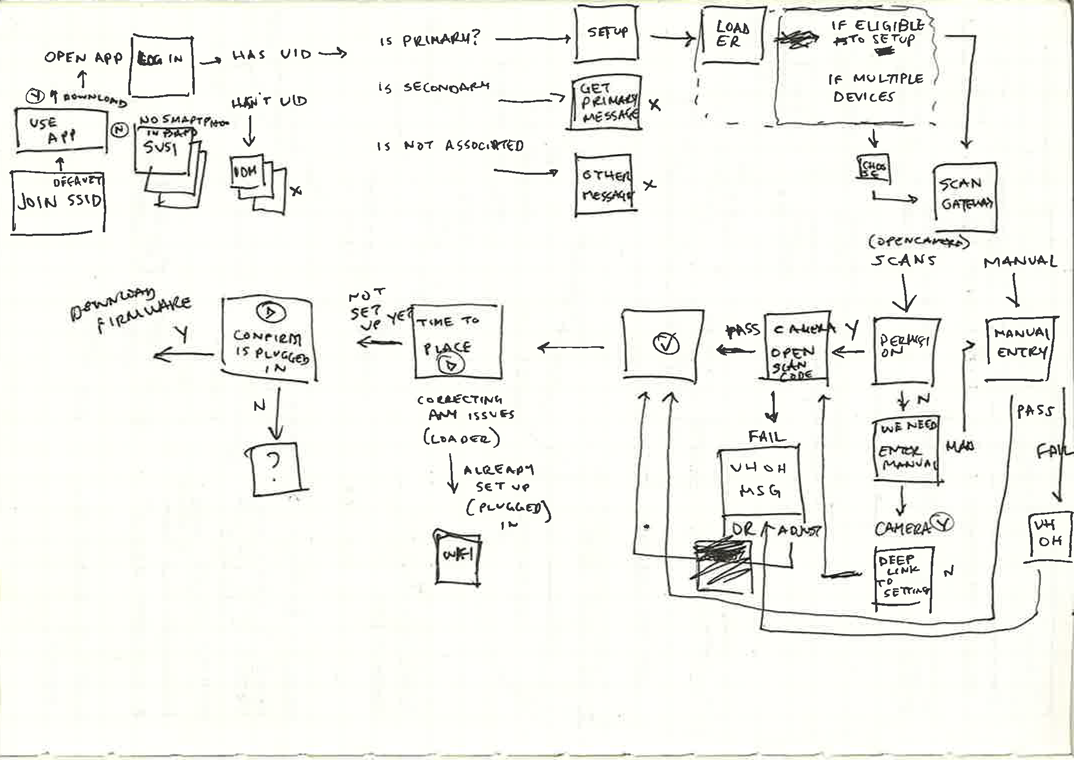 OPEN APP
LOG IN
HAS UID
IS PRIMARY?
SETUP
LOAD
ER
IF ELIGIBLE
TO SETUP
IF MULTIPLE
DEVICES
Y
DOWNLOAD
HASN'T UID
IS SECONDARY
GET
PRIMARY
MESSAGE
X
USE
APP
N
NO SMARTPHO
SUSI
IS NOT ASSOCIATED
OTHER
MESSAGE
X
IDM
X
CHOO
SE
SCAN
GATEWAY
DEFAULT
JOIN SSID
(OPEN CAMERA)
SCANS
MANUAL
DOWNLOAD
FIRMWARE
Y
CONFIRM
IS PLUGGED
IN
NOT
SET
UP YET
TIME TO
PLACE
PASS
CAMERA
OPEN
SCAN
CODE
Y
PERMISI
ON
MANUAL
ENTRY
N
?
CORRECTING
ANY ISSUES
(LOADER)
ALREADY
SET UP
(PLUGGED)
IN
WIFI
FAIL
UH OH
MSG
OR
ADJUST
N
WE NEED
ENTER
MANUAL
MAN
PASS
FAIL
CAMERA Y
DEEP
LINK
TO
SETTING
N
UH
OH